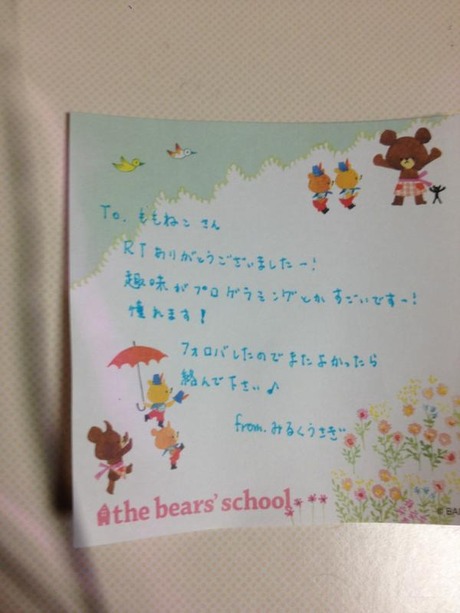 To. ももねこ さん
RTありがとうございましたー!
趣味がプログラミングとかすごいですー!
憧れます!
フォロバしたのでまたよかったら
絡んで下さい♪
from. みるくうさぎ
the bears' school
© BA